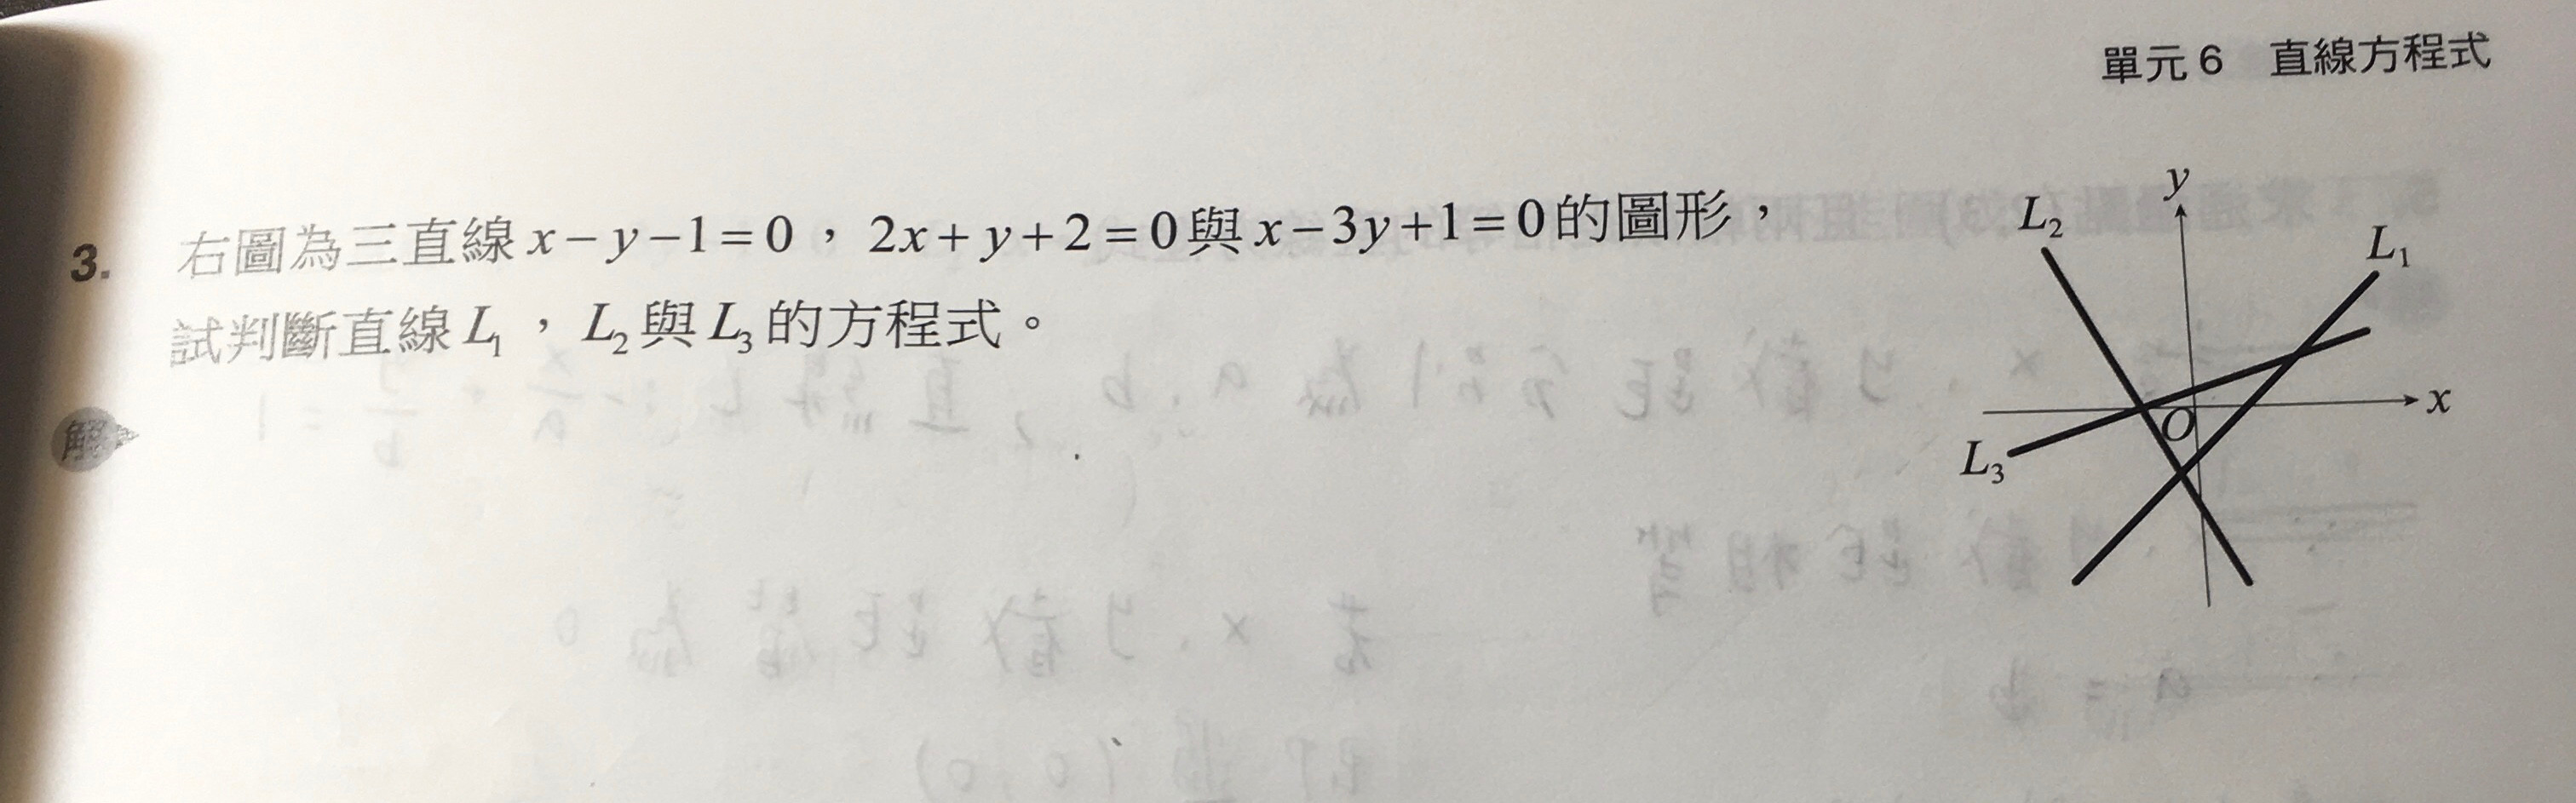 單元 6 直線方程式
3. 右圖為三直線 x－y－1＝0，2x＋y＋2＝0 與 x－3y＋1＝0 的圖形，
試判斷直線 L₁，L₂ 與 L₃ 的方程式。
解
y
L₂
L₁
x
O
L₃